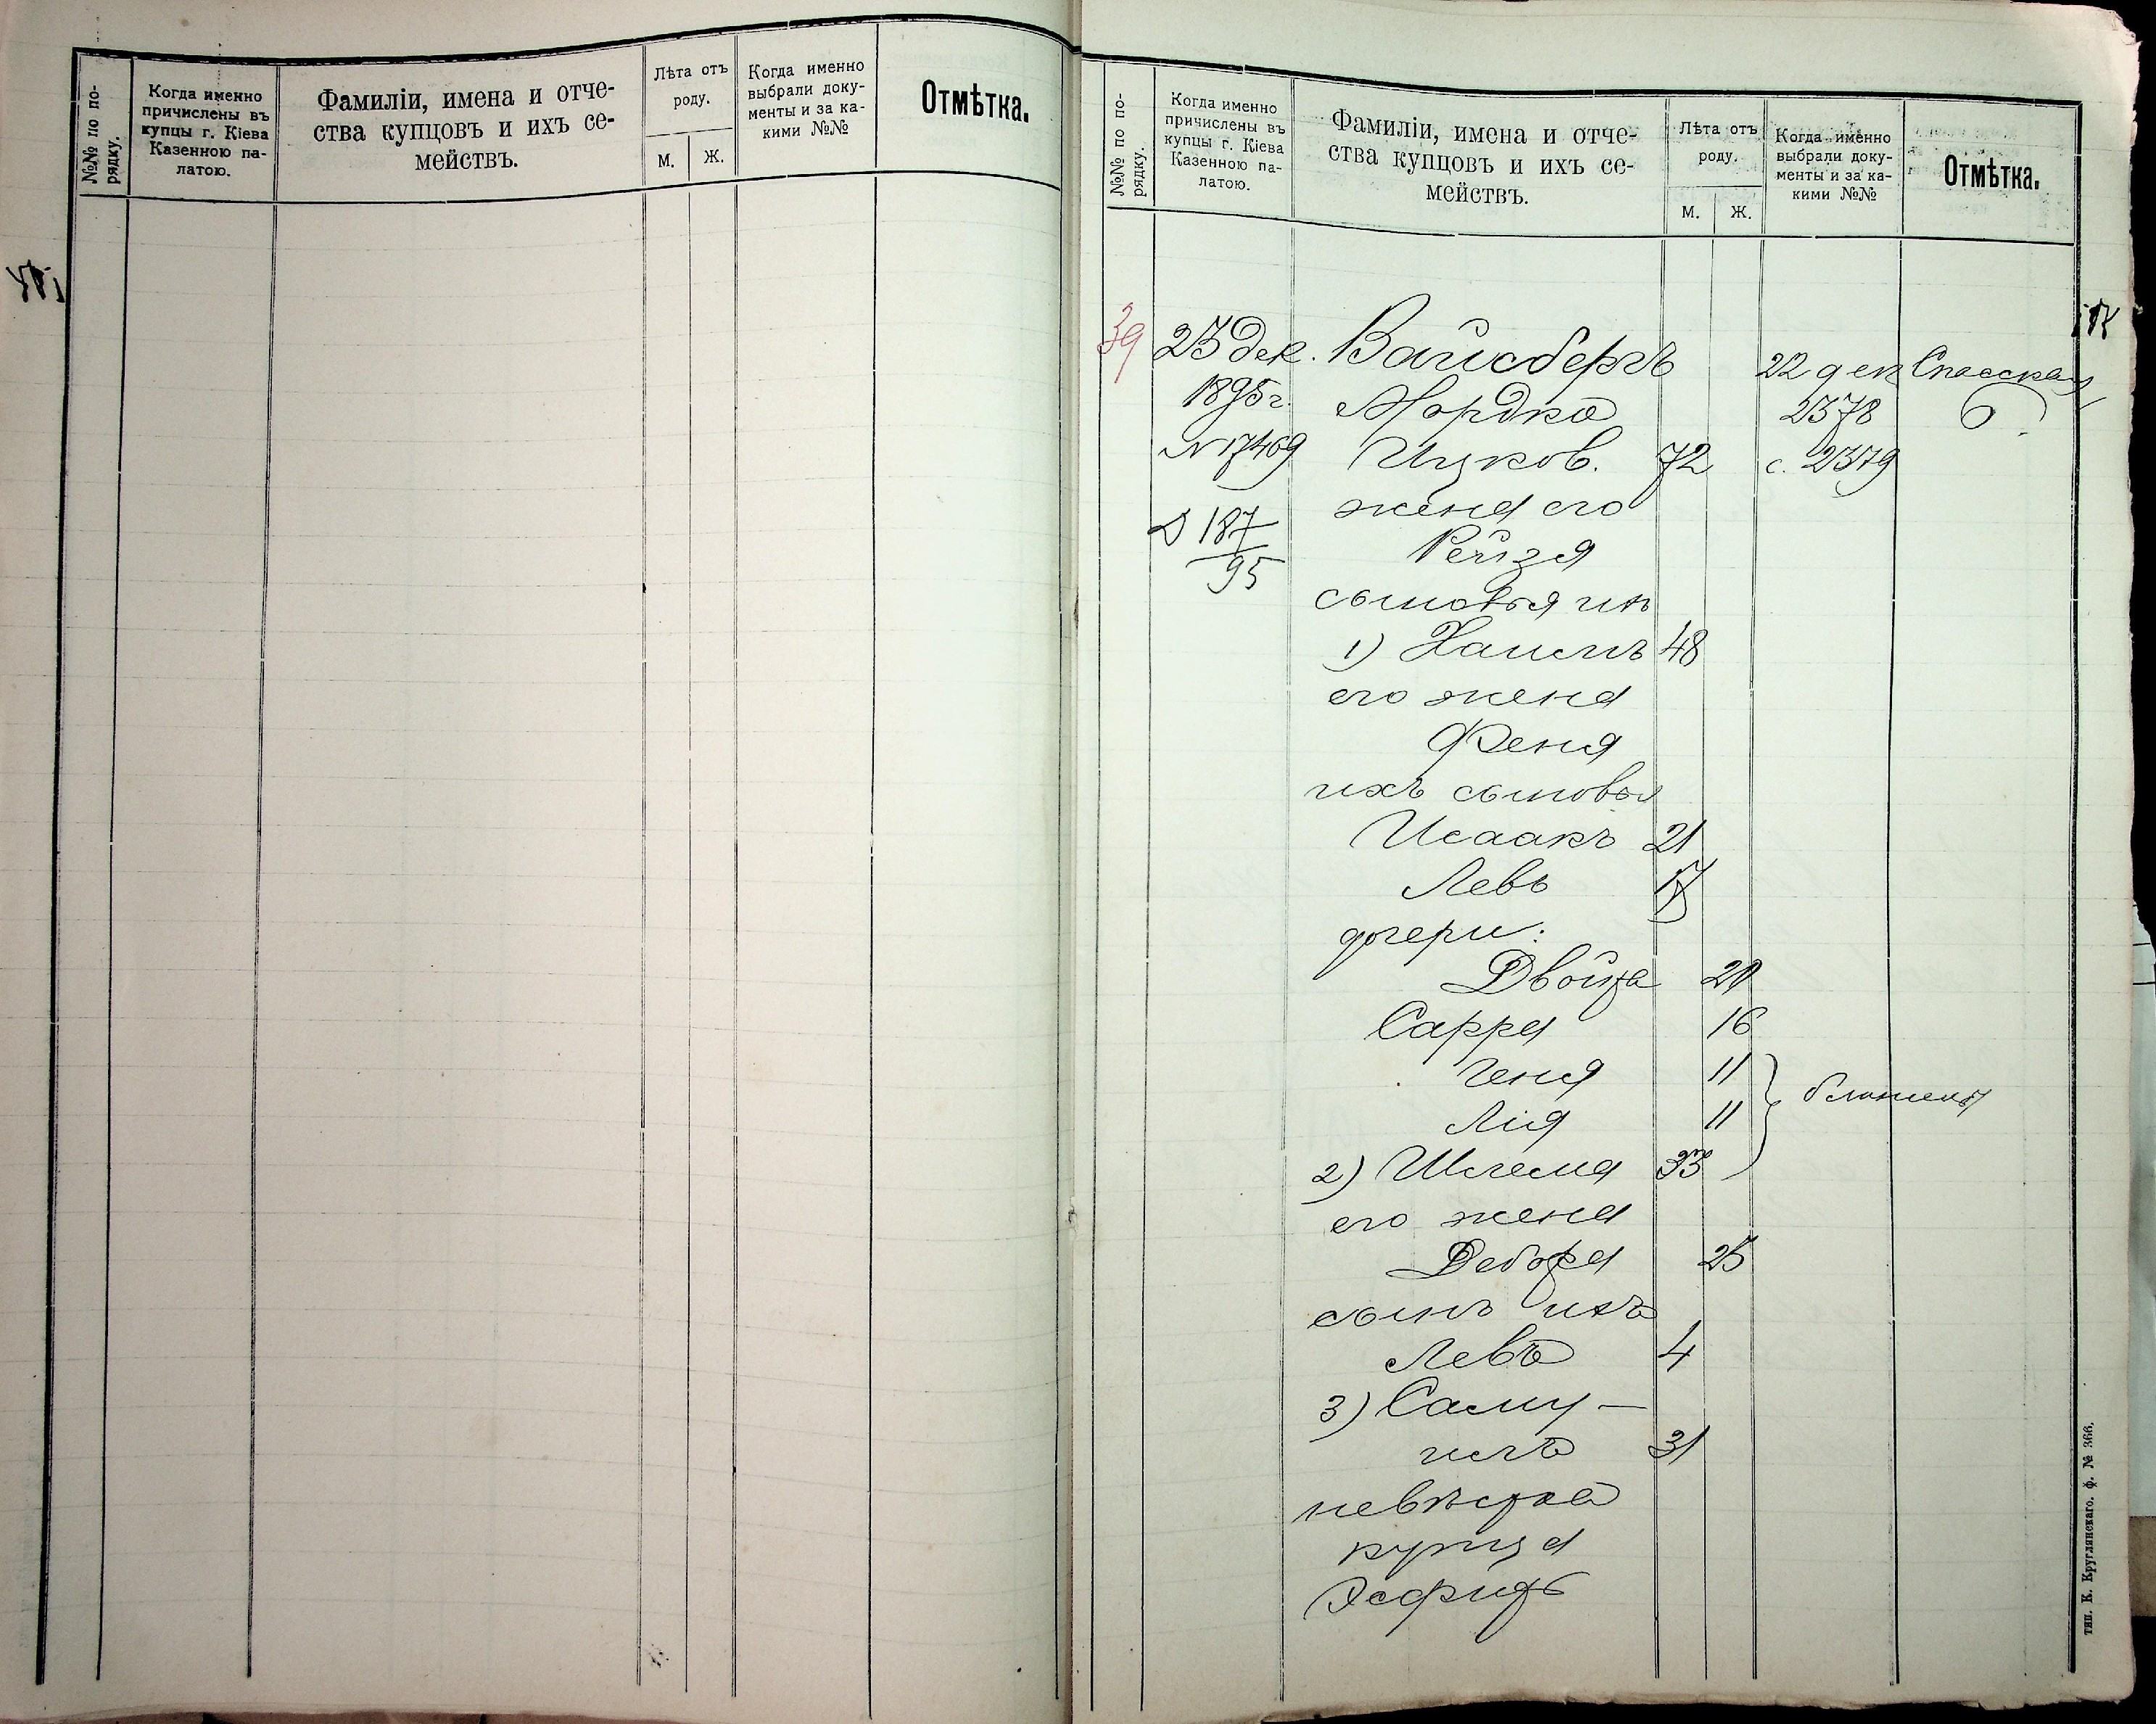 №№ по по-
рядку.
Когда именно
причислены въ
купцы г. Кіева
Казенною па-
латою.
Фамиліи, имена и отче-
ства купцовъ и ихъ се-
мействъ.
Лѣта отъ
роду.
М. Ж.
Когда именно
выбрали доку-
менты и за ка-
кими №№
Отмѣтка.
№№ по по-
рядку.
Когда именно
причислены въ
купцы г. Кіева
Казенною па-
латою.
Фамиліи, имена и отче-
ства купцовъ и ихъ се-
мействъ.
Лѣта отъ
роду.
М. Ж.
Когда именно
выбрали доку-
менты и за ка-
кими №№
Отмѣтка.
39 23 дек. Вайсбергъ 22 дек Спасская
1895 г. Мордко 2378 6
N 17469 Ицков. 72 с. 2379
жена его
Д 187/95
Рейзя
сыновья ихъ
1) Хаимъ 48
его жена
Феня
ихъ сыновья
Исаакъ 21
Левъ 17
дочери:
Двойра
Сарра 16
Геня 11
близнецы
Лія 11
2) Шлема 33
его жена
Дебора 25
сынъ ихъ
Левъ 4
3) Саму-
илъ 31
невѣстка
купца
Эсфирь
тип. К. Круглянскаго. ф. № 366.